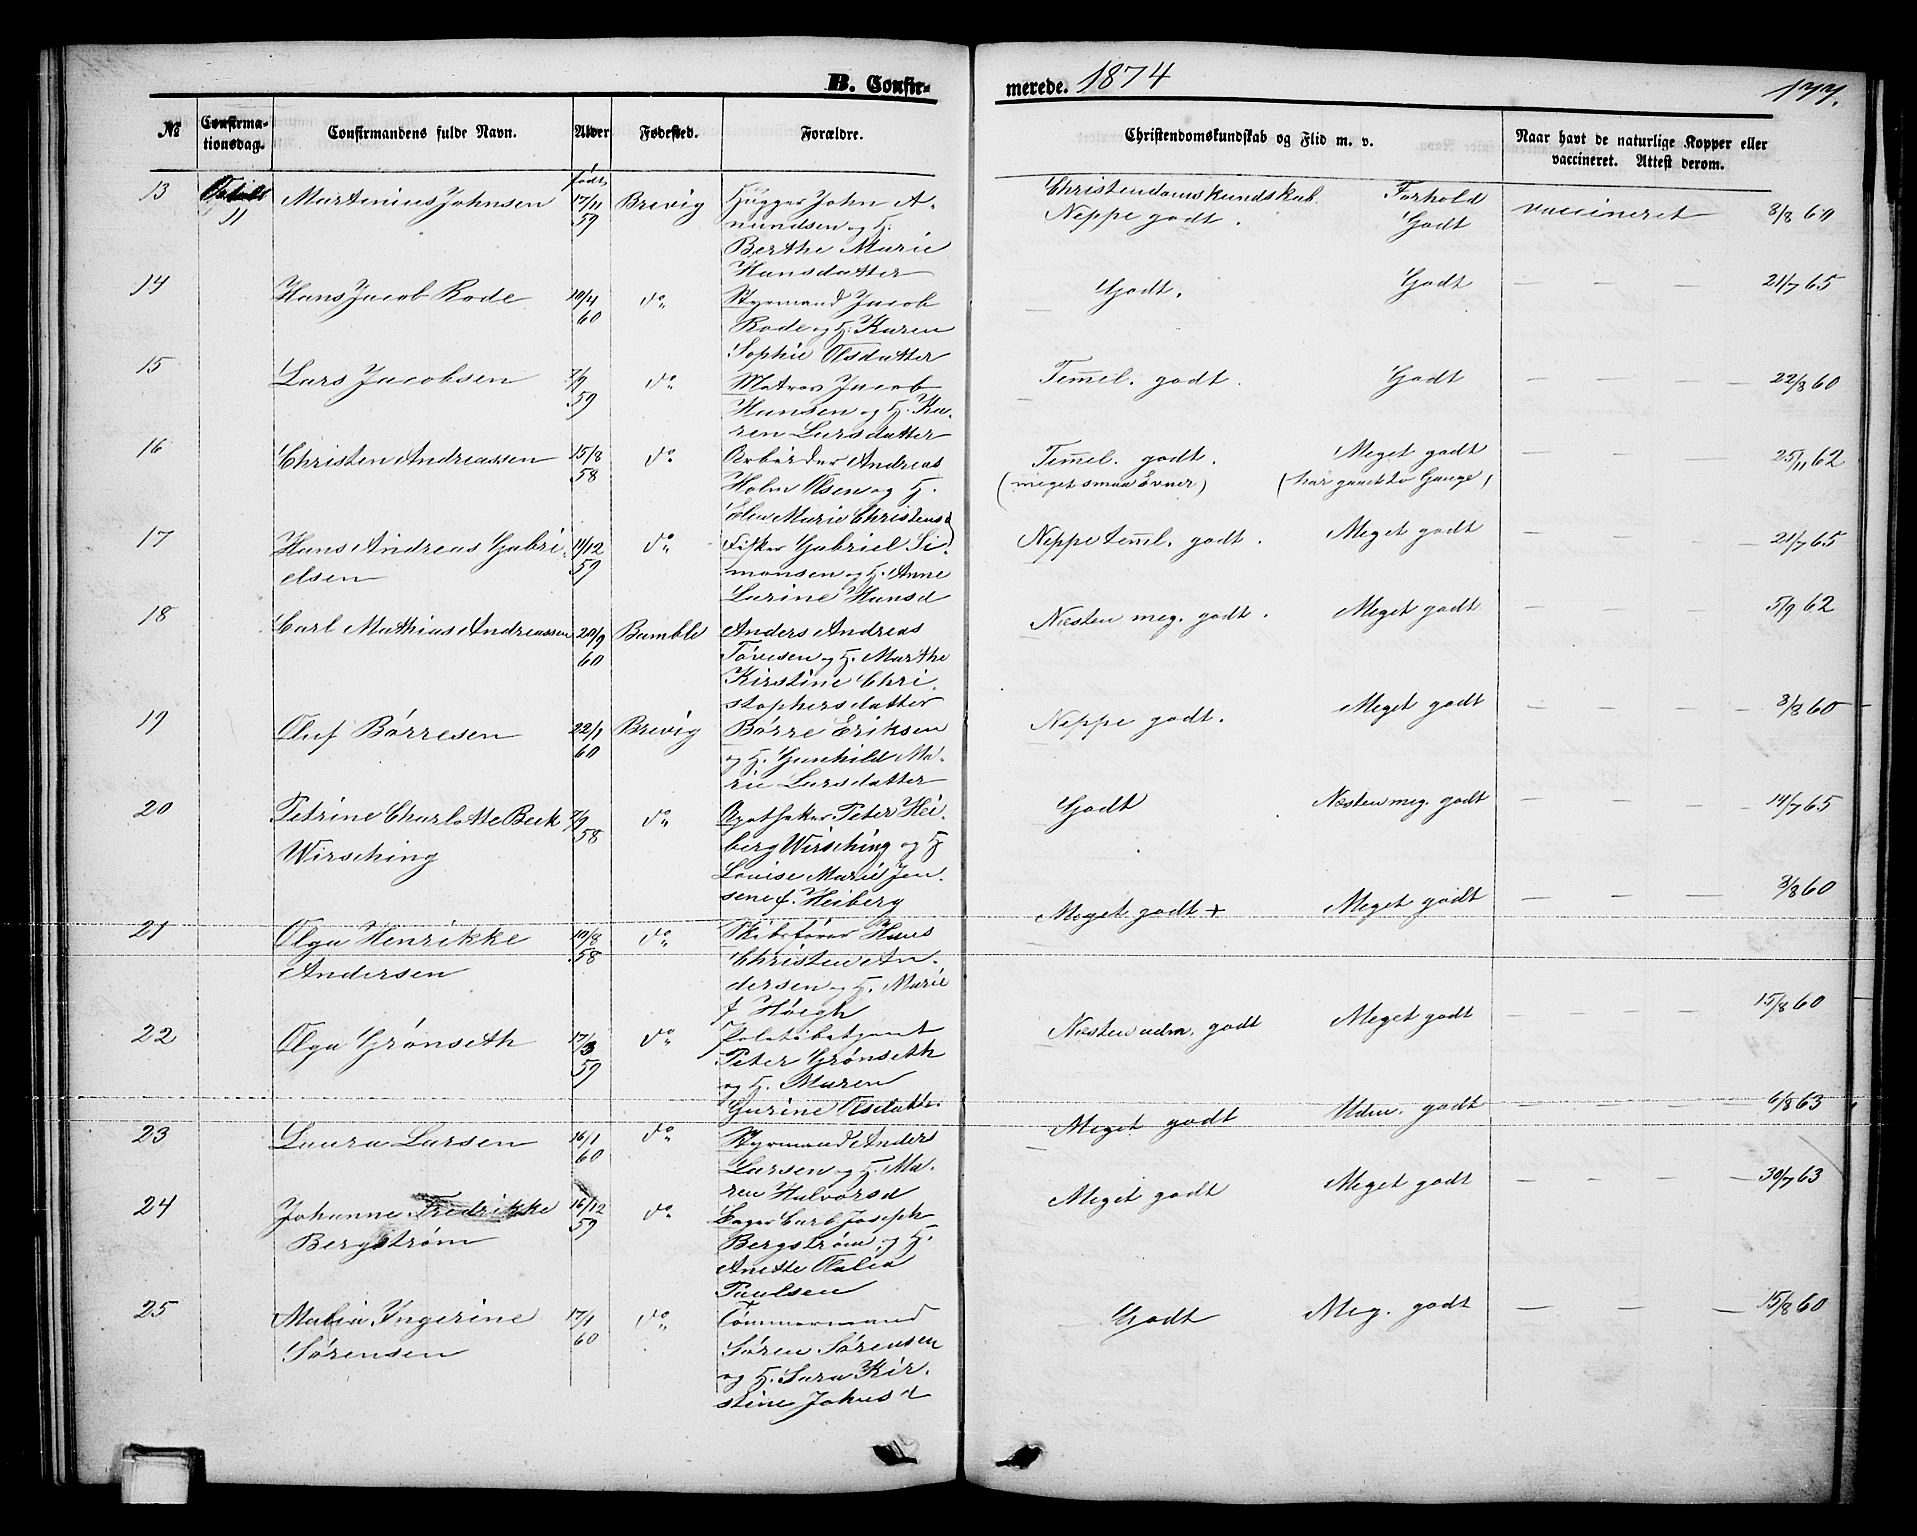 B. Confir-
merede. 1874
177.
No Confirma-tionsdag. Confirmandens fulde Navn. Alder Fødested. Forældre. Christendomskundskab og Flid m. v. Naar havt de naturlige Kopper eller vaccineret. Attest derom.
født
13 11 Martinius Johnsen 17/11 59 Brevig Hugger John A-
mundsen og H.
Berthe Marie
Hansdatter
Christendomskundskab. Forhold
Neppe godt. Godt vaccineret 3/8 60
14 Hans Jacob Rode 10/4 60 do Styrmand Jacob
Rode og H. Karen
Sophie Olsdatter
Godt. Godt — — — 21/7 65
15 Lars Jacobsen 7/9 59 do Matros Jacob
Hansen og H. Ka-
ren Larsdatter
Temel. godt. Godt — — — 22/8 60
16 Christen Andreassen 15/8 58 do Arbeider Andreas
Holm Olsen og H.
Elen Marie Christensd
Temel. godt. Meget godt — — — 25/11 62
(meget smaa Evner) (har gaaet to Gange)
17 Hans Andreas Gabri-
elsen 11/12 59 do Fisker Gabriel Si-
monsen og H. Anne
Larine Hansd
Neppe teml. godt. Meget godt — — — 21/7 65
18 Carl Mathias Andreassen 20/9 60 Bamble Anders Andreas
Toresen og H. Marthe
Kirstine Chri-
stophersdatter
Næsten meg. godt. Meget godt — — — 5/9 62
19 Oluf Börresen 22/1 60 Brevig Børre Eriksen
og H. Gunhild Ma-
rie Larsdatter
Neppe godt. Meget godt — — — 3/8 60
20 Petrine Charlotte Beck
Wirsching 7/9 58 do Apotheker Peter Hei-
berg Wirsching og H
Louise Marie Jen-
sene f. Heiberg
Godt Næsten meg. godt — — — 14/7 65
21 Olga Henrikke
Andersen 10/8 58 do Skibsfører Hans
Christen An-
dersen og H. Marie
f Høigh
Meget godt + Meget godt — — — 3/8 60
22 Olga Grönseth 17/3 59 do Politibetjent
Peter Grönseth
og H. Maren
Gurine Olsdattr.
Næsten udm. godt Meget godt — — — 15/8 60
23 Laura Larsen 16/1 60 do Styrmand Anders
Larsen og H. Ma-
ren Halvorsd
Meget godt Udm. godt — — — 6/8 63
24 Johanne Fredrikke
Bergström 16/12 59 do Bager Carl Joseph
Bergström og H.
Anette Olalia
Paulsen
Meget godt Meget godt — — — 30/7 63
25 Malia Ingerine
Sörensen 17/1 60 do Tömmermand
Sören Sörensen
og H. Sara Kir-
stine Johnsd
Godt Meg. godt — — — 15/8 60